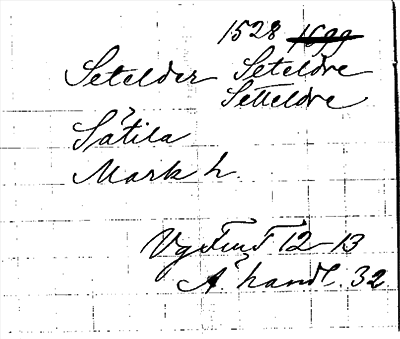 1528
Setelder Seteldre
Setteldre
Sätila
Mark h.
12-13
Ä handl. 32